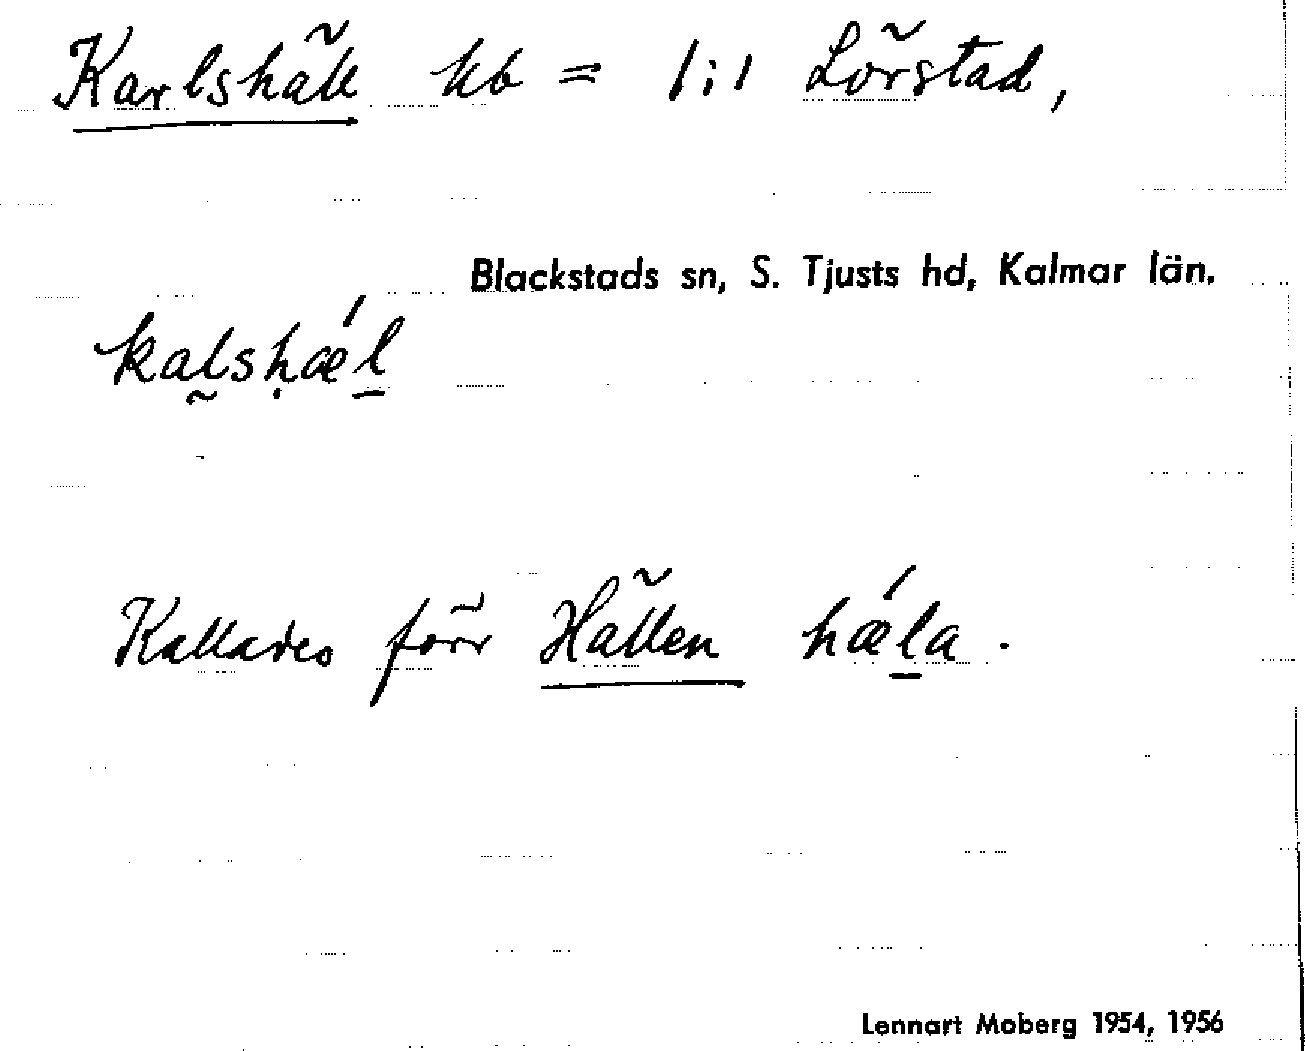 Karlshäll hb = 1:1 Lörstad,
Blackstads sn, S. Tjusts hd, Kalmar län.
kal̰sḥǽl̲
Kallades förr Hällen hǽl̲a.
Lennart Moberg 1954, 1956